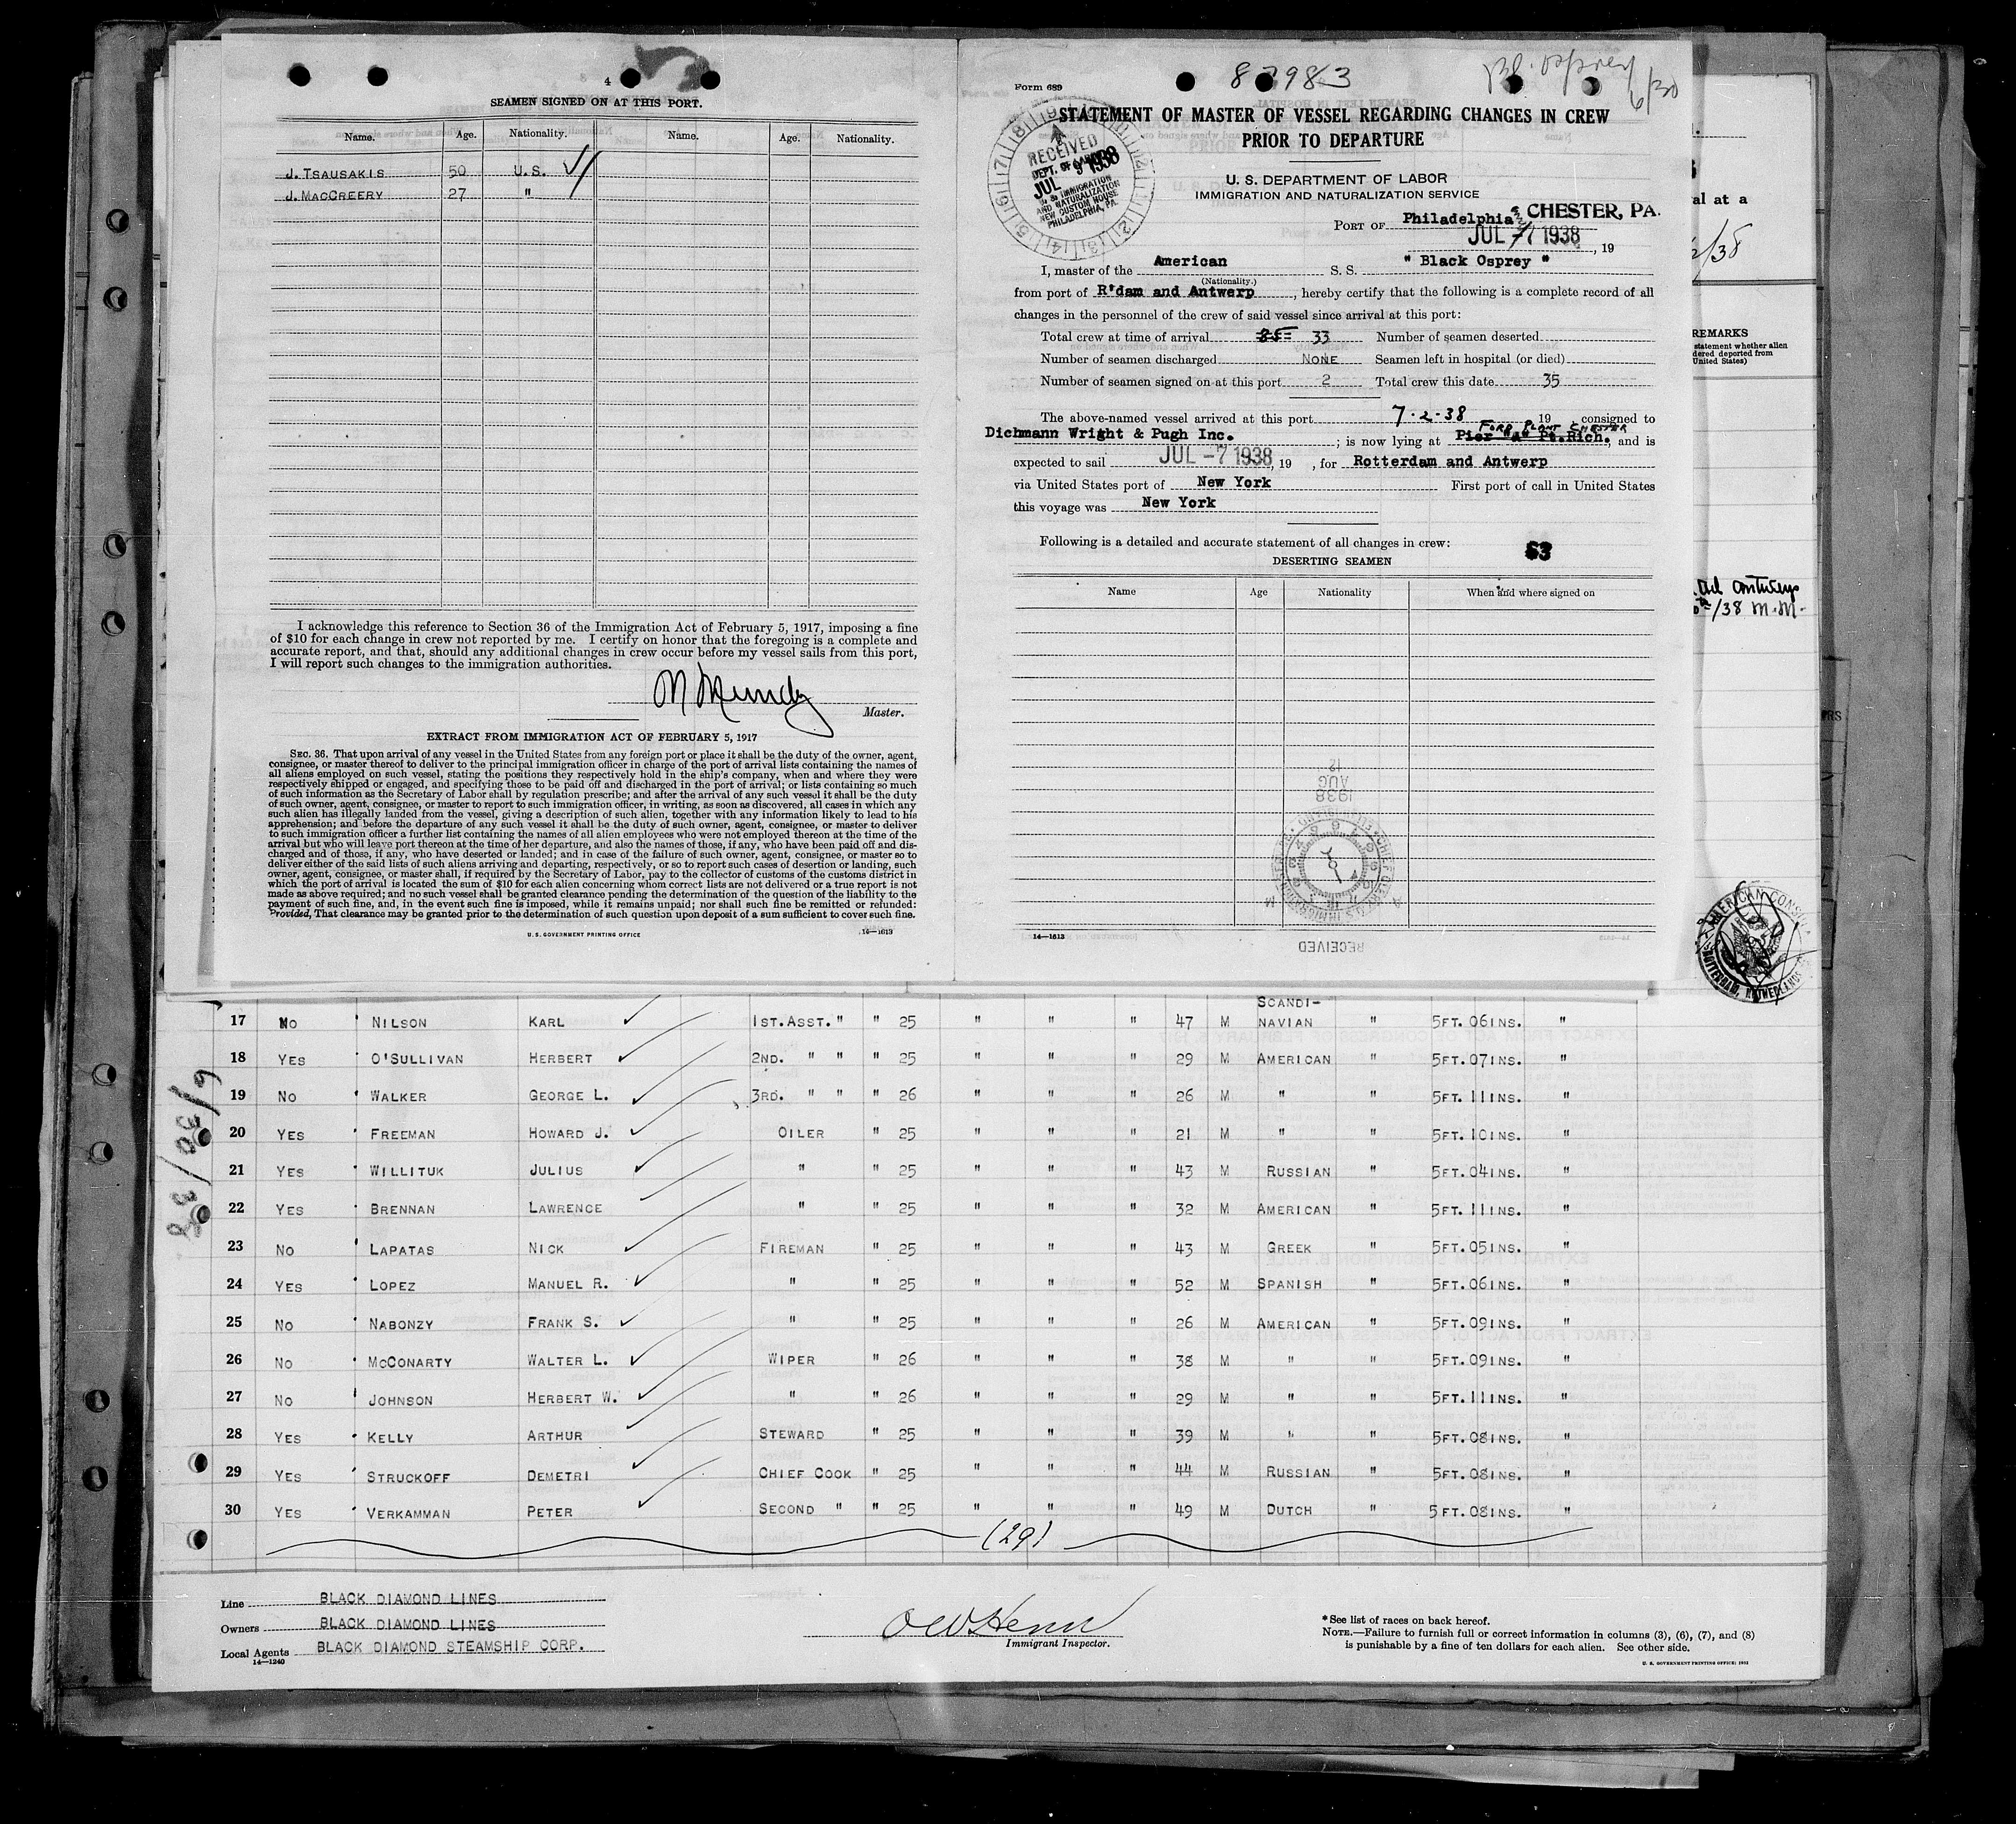 4
SEAMEN SIGNED ON AT THIS PORT.
Name. Age. Nationality. Name. Age. Nationality.
J. TSAUSAKIS 50 U.S.
J. MACCREERY 27 "
I acknowledge this reference to Section 36 of the Immigration Act of February 5, 1917, imposing a fine
of $10 for each change in crew not reported by me. I certify on honor that the foregoing is a complete and
accurate report, and that, should any additional changes in crew occur before my vessel sails from this port,
I will report such changes to the immigration authorities.
Master.
EXTRACT FROM IMMIGRATION ACT OF FEBRUARY 5, 1917
SEC. 36. That upon arrival of any vessel in the United States from any foreign port or place it shall be the duty of the owner, agent,
consignee, or master thereof to deliver to the principal immigration officer in charge of the port of arrival lists containing the names of
all aliens employed on such vessel, stating the positions they respectively hold in the ship's company, when and where they were
respectively shipped or engaged, and specifying those to be paid off and discharged in the port of arrival; or lists containing so much
of such information as the Secretary of Labor shall by regulation prescribe; and after the arrival of any such vessel it shall be the duty
of such owner, agent, consignee, or master to report to such immigration officer, in writing, as soon as discovered, all cases in which any
such alien has illegally landed from the vessel, giving a description of such alien, together with any information likely to lead to his
apprehension; and before the departure of any such vessel it shall be the duty of such owner, agent, consignee, or master to deliver
to such immigration officer a further list containing the names of all alien employees who were not employed thereon at the time of the
arrival but who will leave port thereon at the time of her departure, and also the names of those, if any, who have been paid off and dis-
charged and of those, if any, who have deserted or landed; and in case of the failure of such owner, agent, consignee, or master so to
deliver either of the said lists of such aliens arriving and departing, respectively, or so to report such cases of desertion or landing, such
owner, agent, consignee, or master shall, if required by the Secretary of Labor, pay to the collector of customs of the customs district in
which the port of arrival is located the sum of $10 for each alien concerning whom correct lists are not delivered or a true report is not
made as above required; and no such vessel shall be granted clearance pending the determination of the question of the liability to the
payment of such fine, and, in the event such fine is imposed, while it remains unpaid; nor shall such fine be remitted or refunded:
Provided, That clearance may be granted prior to the determination of such question upon deposit of a sum sufficient to cover such fine.
U. S. GOVERNMENT PRINTING OFFICE 14—1613
Form 689
Bl. Osprey
6/30
STATEMENT OF MASTER OF VESSEL REGARDING CHANGES IN CREW
PRIOR TO DEPARTURE
RECEIVED
DEPT. OF LABOR
JUL 9 1938
U. S. IMMIGRATION
AND NATURALIZATION
NEW CUSTOM HOUSE
PHILADELPHIA, PA.
U. S. DEPARTMENT OF LABOR
IMMIGRATION AND NATURALIZATION SERVICE
PORT OF Philadelphia & CHESTER, PA.
JUL -7 1938, 19
I, master of the American S. S. " Black Osprey "
(Nationality.)
from port of R'dam and Antwerp, hereby certify that the following is a complete record of all
changes in the personnel of the crew of said vessel since arrival at this port:
Total crew at time of arrival 35 33 Number of seamen deserted
Number of seamen discharged NONE Seamen left in hospital (or died)
Number of seamen signed on at this port 2 Total crew this date 35
The above-named vessel arrived at this port 7-2-38 19 consigned to
FORD PLANT CHESTER
Dichmann Wright & Pugh Inc.; is now lying at Pier "A" Pt.Rich., and is
expected to sail JUL -7 1938, 19 , for Rotterdam and Antwerp
via United States port of New York First port of call in United States
this voyage was New York
Following is a detailed and accurate statement of all changes in crew: 53
DESERTING SEAMEN
Name Age Nationality When and where signed on
12
AUG
1938
RECEIVED
14—1613
al at a
REMARKS
statement whether alien
dered deported from
United States)
/38 M.M.
AMERICAN CONSUL
ROTTERDAM, NETHERLANDS
6/30/38
SCANDI-
17 NO NILSON KARL 1ST.ASST. " " 25 " " " 47 M NAVIAN " 5FT.06INS. "
18 YES O'SULLIVAN HERBERT 2ND. " " " 25 " " " 29 M AMERICAN " 5FT.07INS. "
19 NO WALKER GEORGE L. 3RD. " " " 26 " " " 26 M " " 5FT.11INS. "
20 YES FREEMAN HOWARD J. OILER " 25 " " " 21 M " " 5FT.10INS. "
21 YES WILLITUK JULIUS " " 25 " " " 43 M RUSSIAN " 5FT.04INS. "
22 YES BRENNAN LAWRENCE " " 25 " " " 32 M AMERICAN " 5FT.11INS. "
23 NO LAPATAS NICK FIREMAN " 25 " " " 43 M GREEK " 5FT.05INS. "
24 YES LOPEZ MANUEL R. " " 25 " " " 52 M SPANISH " 5FT.06INS. "
25 NO NABONZY FRANK S. " " 25 " " " 26 M AMERICAN " 5FT.09INS. "
26 NO MCCONARTY WALTER L. WIPER " 26 " " " 38 M " " 5FT.09INS. "
27 NO JOHNSON HERBERT W. " " 26 " " " 29 M " " 5FT.11INS. "
28 YES KELLY ARTHUR STEWARD " 25 " " " 39 M " " 5FT.08INS. "
29 YES STRUCKOFF DEMETRI CHIEF COOK " 25 " " " 44 M RUSSIAN " 5FT.08INS. "
30 YES VERKAMMAN PETER SECOND " " 25 " " " 49 M DUTCH " 5FT.08INS. "
(29)
Line BLACK DIAMOND LINES
Owners BLACK DIAMOND LINES
Local Agents BLACK DIAMOND STEAMSHIP CORP.
14—1240
Immigrant Inspector.
*See list of races on back hereof.
NOTE.—Failure to furnish full or correct information in columns (3), (6), (7), and (8)
is punishable by a fine of ten dollars for each alien. See other side.
U. S. GOVERNMENT PRINTING OFFICE: 1932